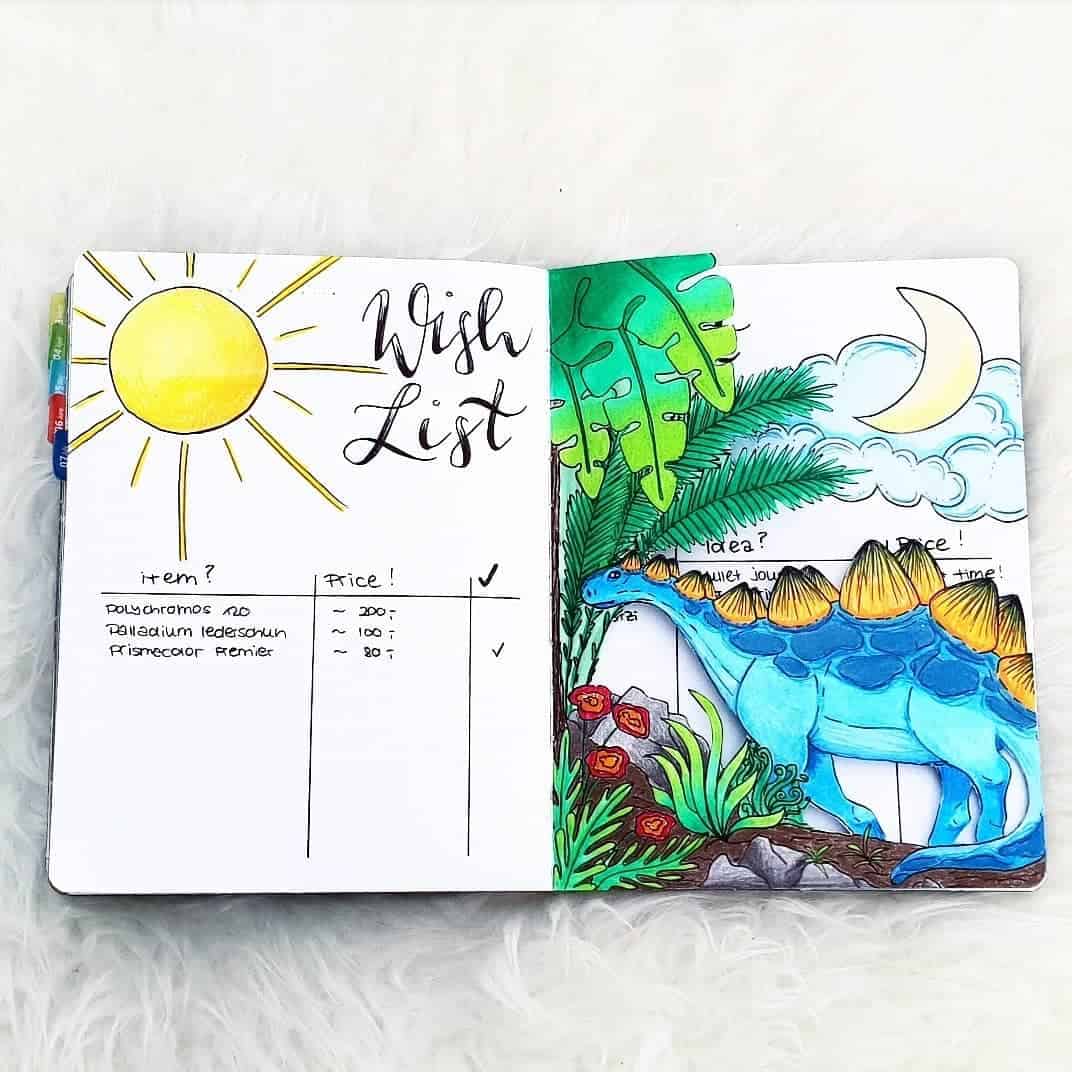 Wish
List
item? Price! ✓
Polychromos 120 ~ 200,-
Palladium lederschuh ~ 100,-
Prismecolor Premier ~ 80,- ✓
Idea? Price!
time!
04
05
06
07